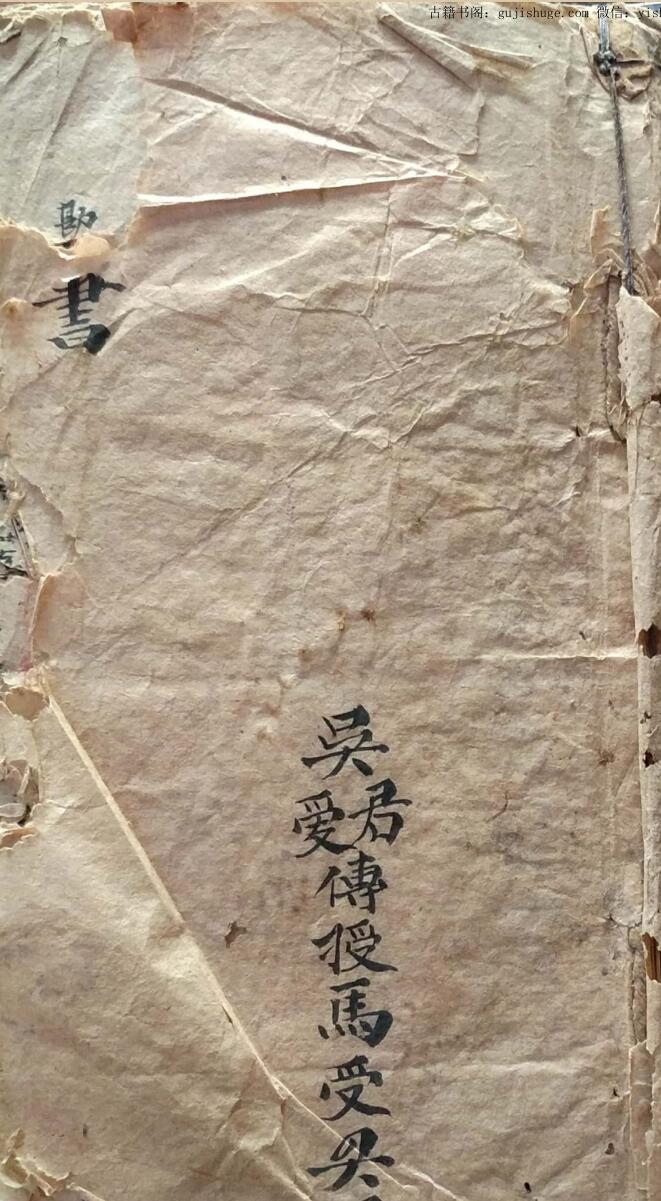 古籍书阁：gujishuge.com 微信：yish
書
吳君愛傳授馬受吳